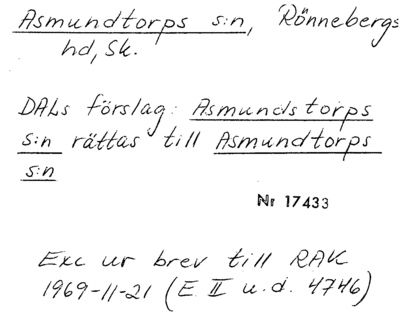 Asmundtorps s:n, Rönnebergs
hd, Sk.
DALs förslag: Asmundstorps
s:n rättas till Asmundtorps
s:n
Nr 17433
Exc ur brev till RAK
1969-11-21 (E II u.d. 4746)